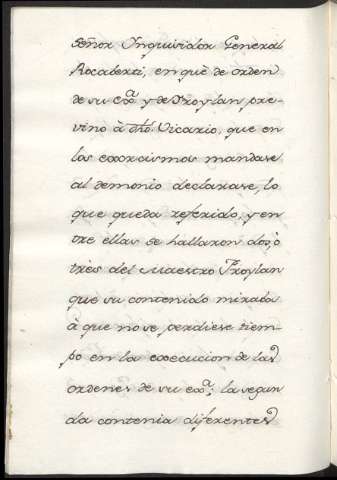 Señor Inquisidor General
Rocaberti, en què de orden
de su Exª y de Froylan, pre-
vino à dhô Vicario, que en
los exorcismos mandase
al demonio declarase, lo
que queda referido, y en
tre ellas se hallaron dos, ò
très del Maestro Froylan
que su contenido miraba
à que no se perdiese tiem-
po en la execucion de las
ordenes de su Exª; la segun
da contenia diferentes